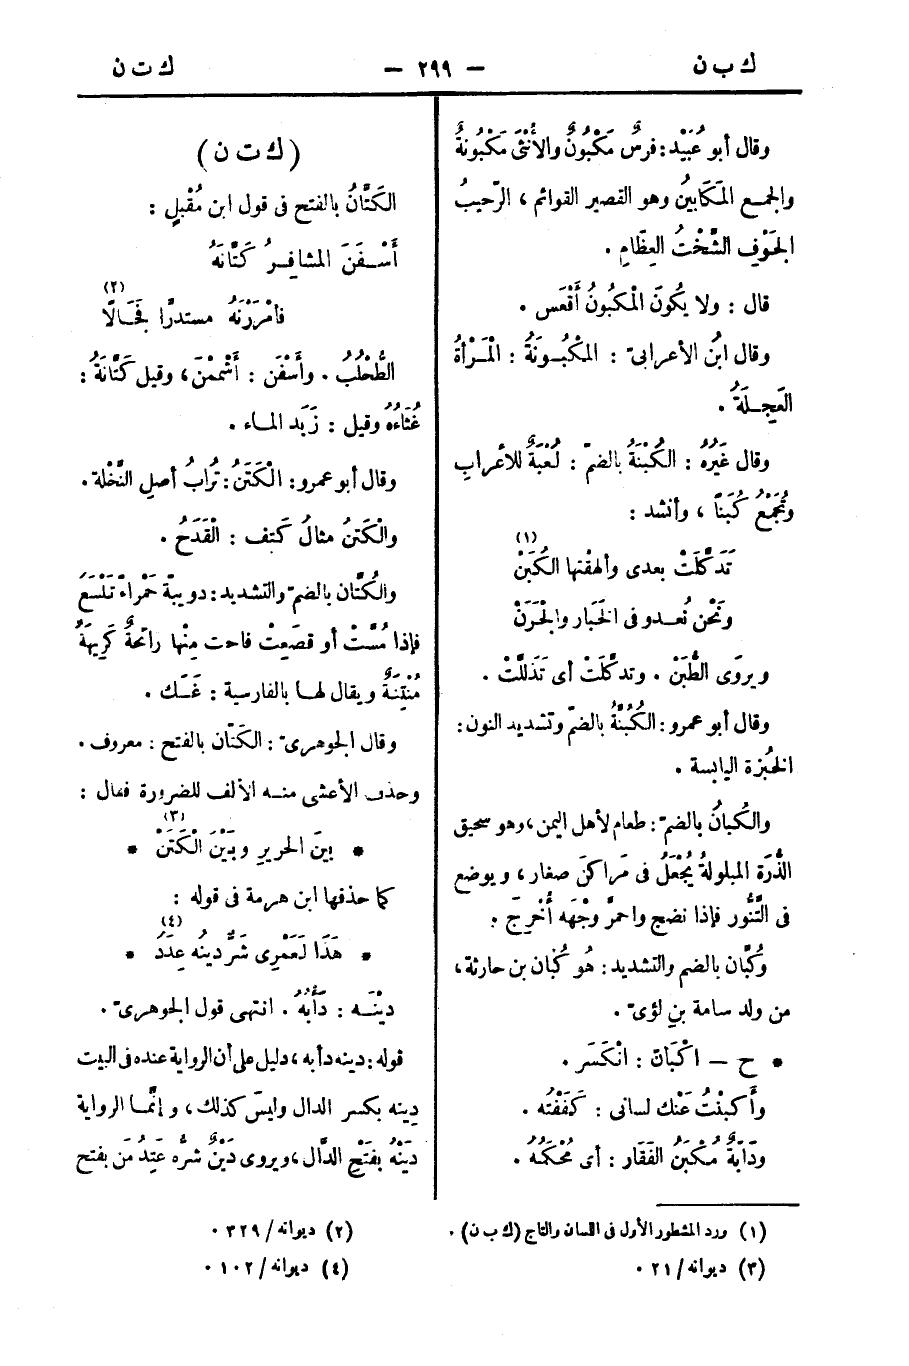 ك ب ن
— ٢٩٩ —
ك ت ن
وقال أبو عُبَيْد: فرسٌ مَكْبُونٌ والأُنْثَى مَكْبُونةٌ
والجمع المَكَابِينُ وهو القصير القوائم، الرّحيبُ
الجَوْفِ الشَّخْتُ العِظَامِ.
قال : ولا يكُونُ المكْبُونُ أَقْعَس.
وقال ابنُ الأعرابىّ : المَكْبُونَةُ : الْمَرْأةُ
العَجِلَةُ.
وقال غَيرُهُ : الكُبْنَةُ بالضمّ : لُعْبَةٌ للأعرابِ
وتُجْمَعُ كُبَناً ، وأنشد :
تَدَكَّلَتْ بعدى وألهتْها الكُبَنْ (١)
ونَحْن نُعدو فى الخَبَار والْجَرَنْ
ويروَى الطُّبَنْ. وتدكَّلَتْ أى تَذَلَّلَتْ.
وقال أبو عمرو: الكُبُنَّةُ بالضمّ وتشديد النون:
الخُبزة اليابسة.
والكُبانُ بالضمّ : طعام لأهل اليمن، وهو سحيق
الذُّرَة المبلولةُ يُجْعَلُ فى مَراكنَ صغار ، ويوضع
فى التَّنُّور فإذا نضج واحمرَّ وجْهه أُخْرِجَ.
وكُبَّان بالضم والتشديد : هُو كُبَّان بن حارثة،
من ولد سامة بنِ لؤىّ.
* ح — اكْبَانَ : انْكَسَر.
وأَكبنْتُ عَنك لسانى : كَفَفْتُه.
ودَابَّةٌ مُكْبَنُ الفَقَار : أى مُحْكَمُهُ.
(ك ت ن)
الكَتَّانُ بالفتح فى قول ابن مُقْبِلٍ :
أَسْفَنَ المشافِرُ كَتَّانَهُ
فأمْرَرْنَهُ مستدرًّا فَجَالَا (٢)
الطُّحْلُبُ. وأسْفَن : أَشْمَمْنَ، وقيل كَتَّانَهُ :
غُثَاءَهُ وقيل : زَبَد الماء.
وقال أبو عمرو: الْكَتَنُ: تُرابُ أصلِ النَّخْلة.
والْكَتِنُ مثالُ كَتِف : الْقَدَحُ.
والكُتَّان بالضمّ والتشديد: دويبةٌ حَمْراءُ تَلْسَعُ
فإذا مُسَّتْ أو قصَعَتْ فاحت مِنْها رائحةٌ كَرِيهَةٌ
مُنْتِنَةٌ ويقال لها بالفارسية : غَسَك.
وقال الجوهرىّ : الكتّان بالفتح : معروف.
وحذف الأعشى منه الألف للضرورة فقال :
* بينَ الحريرِ وبَيْنَ الْكَتَنْ * (٣)
كما حذفها ابن هرمة فى قوله :
* هَذَا لَعَمْرِى شَرُّ دينُه عِدَدُ * (٤)
دينَه : دَأْبُهُ. انتهى قول الجوهرىّ.
قوله: دينه دأبه، دليل على أن الرواية عنده فى البيت
دِينه بكسر الدال وليسَ كذلك، وإنَّما الرواية
دَيْنُه بفَتْحِ الدَّال، ويروى دَيْنٌ شرُّه عَتِدُ مَن بفتح
(١) ورد المشطور الأول فى اللسان والتاج (ك ب ن).
(٢) ديوانه/٣٢٩.
(٣) ديوانه/٢١.
(٤) ديوانه/١٠٢.